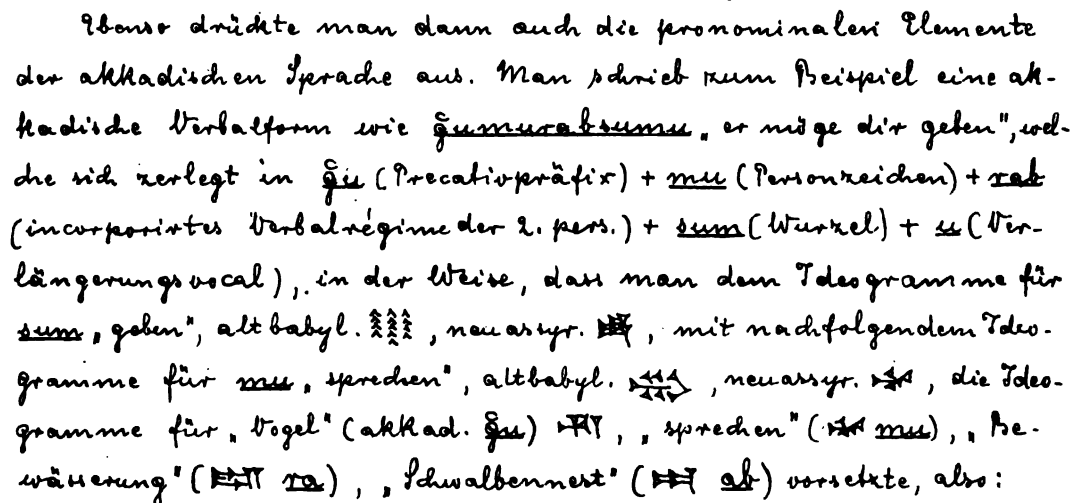 Ebenso drückte man dann auch die pronominalen Elemente
der akkadischen Sprache aus. Man schrieb zum Beispiel eine ak-
kadische Verbalform wie g̃umurabsumu „er möge dir geben", wel-
che sich zerlegt in g̃u (Precativpräfix) + mu (Personzeichen) + rab
(incorporirtes Verbalrégime der 2. pers.) + sum (Wurzel) + u (Ver-
längerungsvocal), in der Weise, dass man dem Ideogramme für
sum „geben", altbabyl. , neuassyr. , mit nachfolgendem Ideo-
gramme für mu „sprechen", altbabyl. , neuassyr. , die Ideo-
gramme für „Vogel" (akkad. g̃u) , „sprechen" ( mu), „Be-
wässerung" ( ra), „Schwalbennest" ( ab) vorsetzte, also: